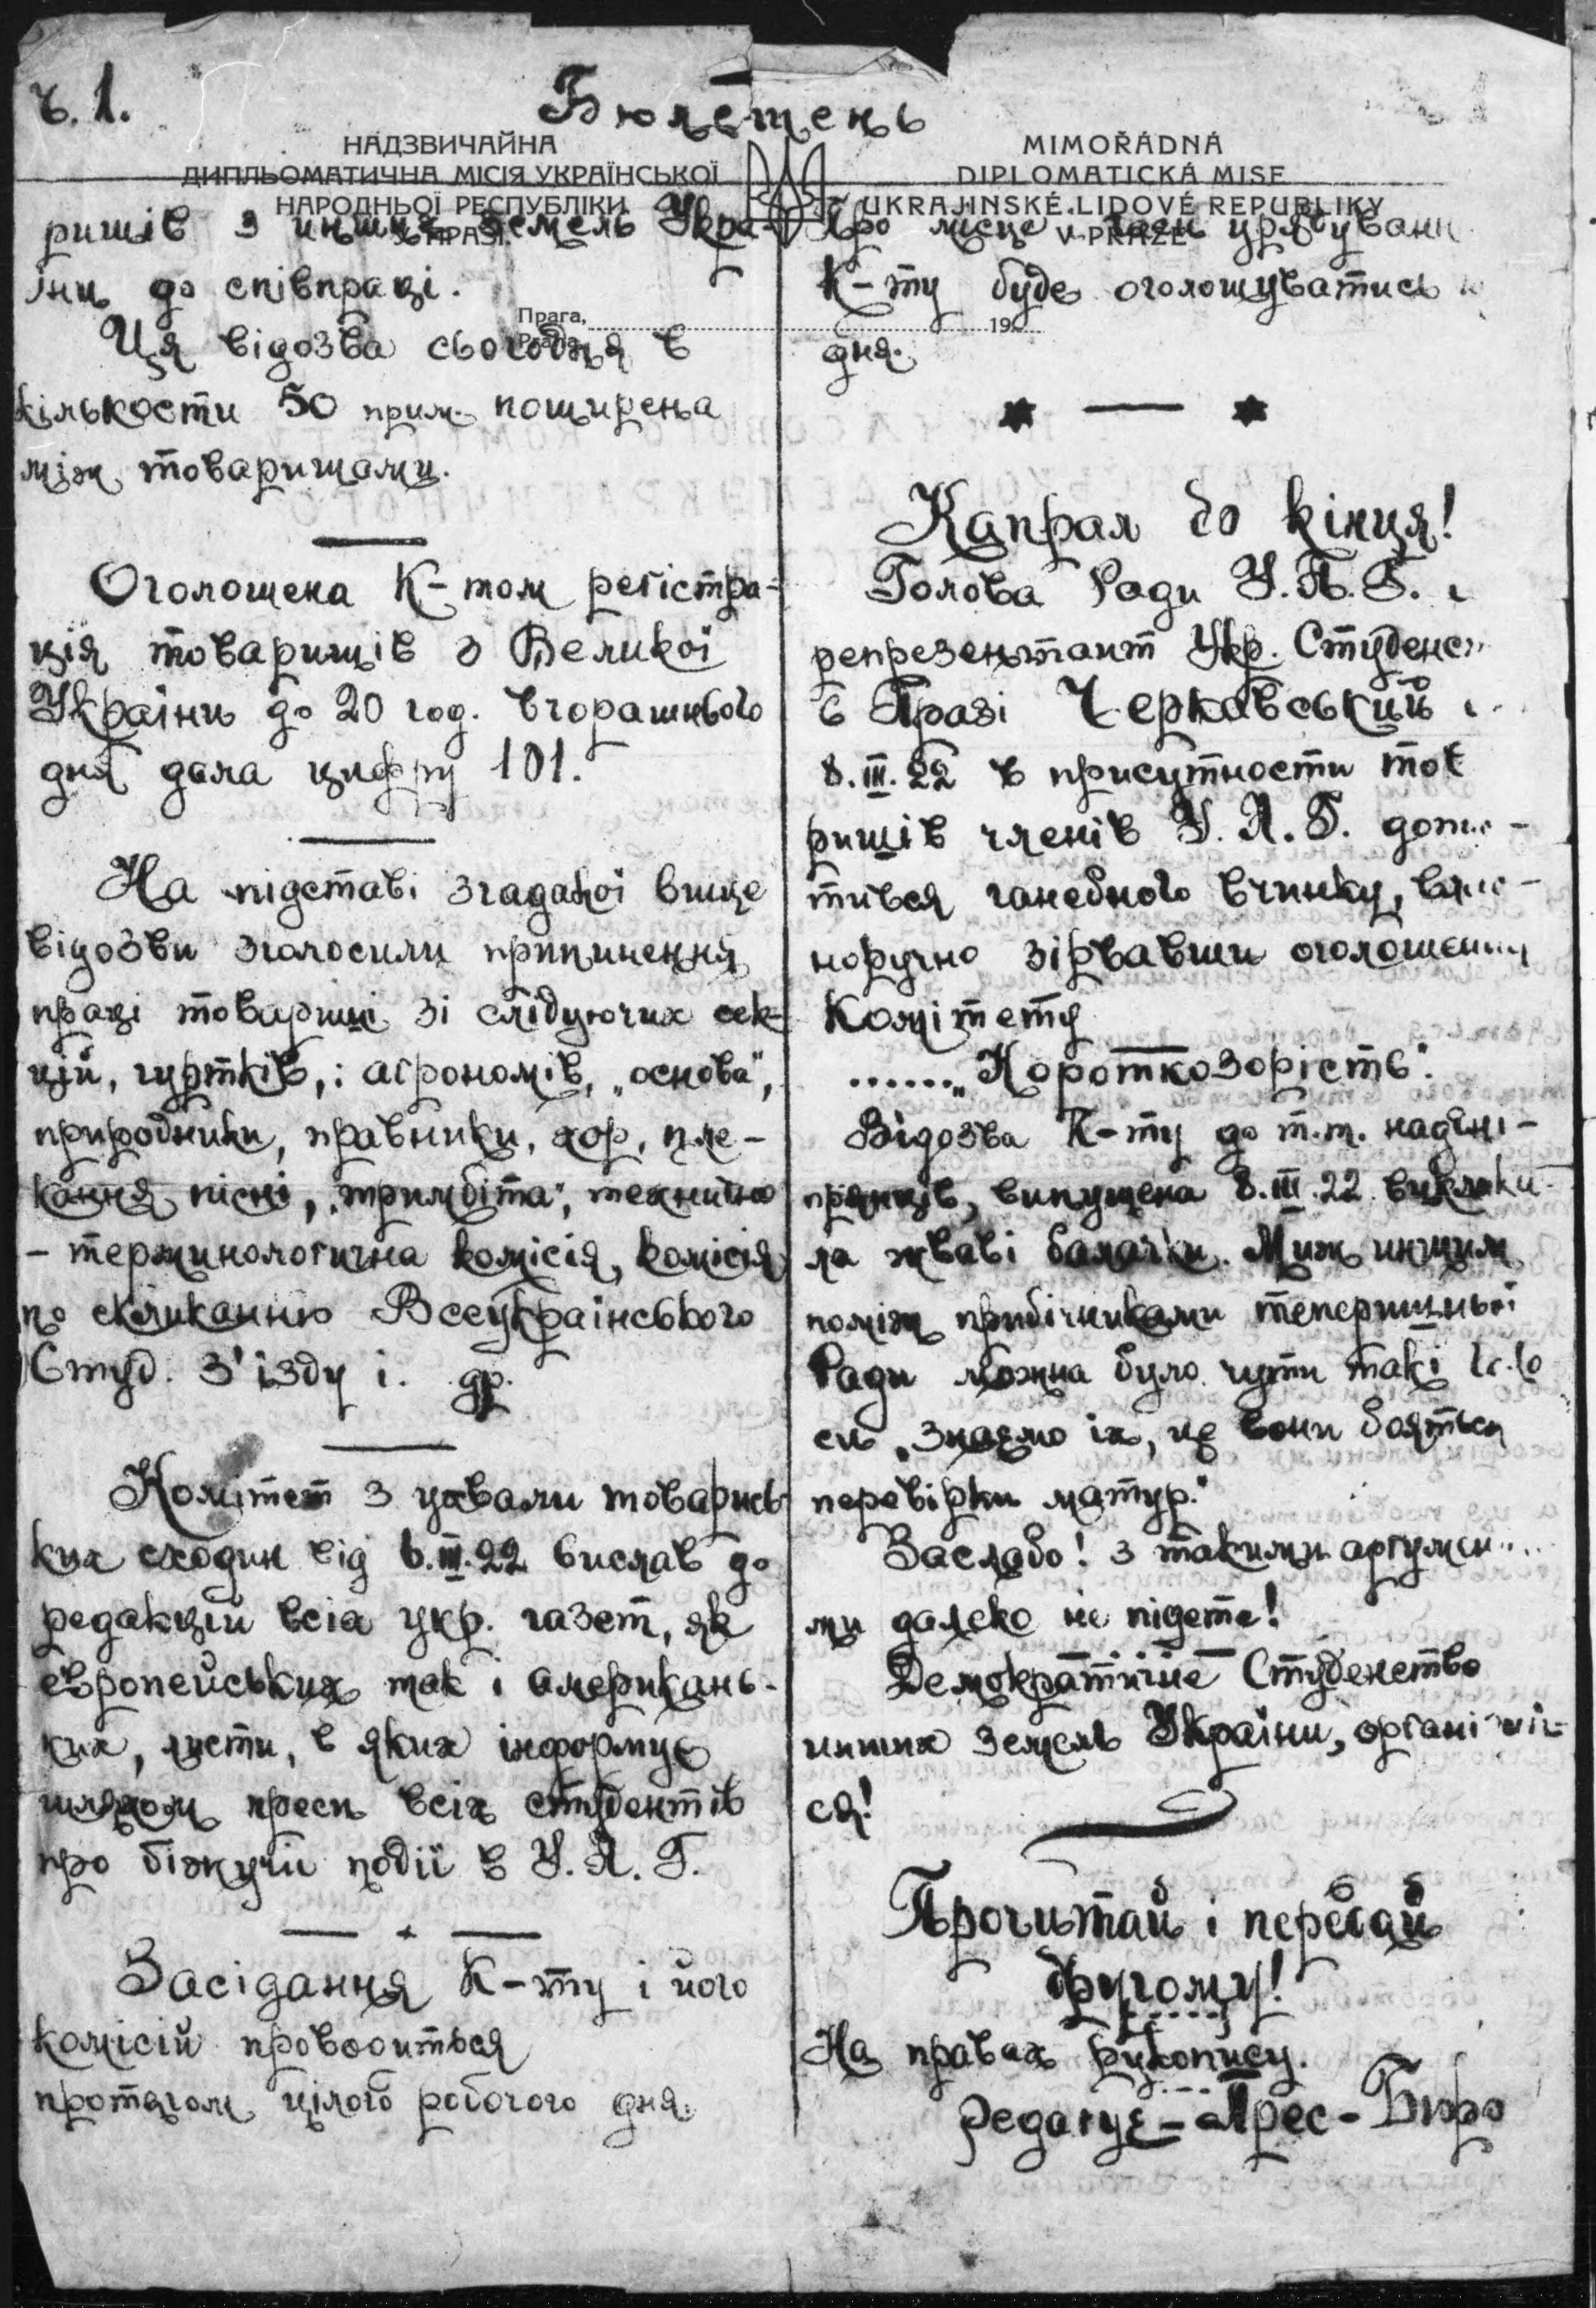 ч. 1.
Бюлетень
НАДЗВИЧАЙНА
ДИПЛЬОМАТИЧНА МІСІЯ УКРАЇНСЬКОЇ
НАРОДНЬОЇ РЕСПУБЛІКИ
В ПРАЗІ.
MIMOŘÁDNÁ
DIPLOMATICKÁ MISE
UKRAJINSKÉ LIDOVÉ REPUBLIKY
V PRAZE
Прага,
Praha, 19
ришів з инших земель Укра-
їни до співпраці.
Ця відозва сьогодня в
кількости 50 прим. поширена
між товаришами.
Оголошена К-том регістра-
ція товаришів з Великої
України до 20 год. вчорашнього
дня дала цифру 101.
На підставі згаданої вище
відозви зголосили припинення
праці товариші зі слідуючих сек-
цій, гуртків,: агрономів, „основа",
природники, правники, хор, пле-
кання пісні, „тримбіта", технично
- термінологична комісія, комісія
по скликанню Всеукраїнського
Студ. З'їзду і. др.
Комітет з ухвали товарись-
ких сходин від 6.III.22 вислав до
редакцій всіх укр. газет, як
европейських так і американь-
ких, листи, в яких інформує
шляхом преси всіх студентів
про біжучі події в У. А. Г.
Засідання К-ту і його
комісій проводиться
протягом цілого робочого дня.
Про місце урядування
К-ту буде оголошуватись
дня.
Капрал до кінця!
Голова Ради У. А. Г. і
репрезентант Укр. Студенс
в Празі Черкавський
8.III.22 в присутности тов
ришів членів У. А. Г.
тився ганебного вчинку, влас-
норучно зірвавши оголошення
Комітету
...... „Короткозорість".
Відозва К-ту до т.т. наддні-
прянців, випущена 8.III.22 виклика-
ла жваві балачки. Миж иншим
поміж прибічниками теперишньої
Ради можна було чути такі
си „знаємо їх, це вони бояться
перевірки матур."
Заслабо! з такими аргумен
ми далеко не підете!
Демократичне Студенство
инших земель України, організуй-
ся!
Прочитай і передай
другому!
На правах рукопису.
редагує - Прес-Бюро